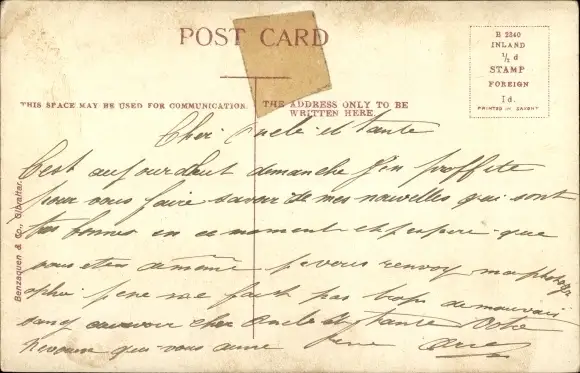 POST CARD
B 2340
INLAND
½ d
STAMP
FOREIGN
1d.
PRINTED IN SAXONY
THIS SPACE MAY BE USED FOR COMMUNICATION.
THE ADDRESS ONLY TO BE
WRITTEN HERE.
Benzaquen & Co., Gibraltar.
Cher oncle et tante
C'est aujourd'hui dimanche j'en proffite
pour vous faire savoir de mes nouvelles qui sont
tres bonnes en ce moment et j'espere que
vous etes de même je vous renvoy ma photogr
aphi je ne me fait pas trops de mauvais
sang aurevoir cher oncle et tante Votre
Neveu qui vous aime